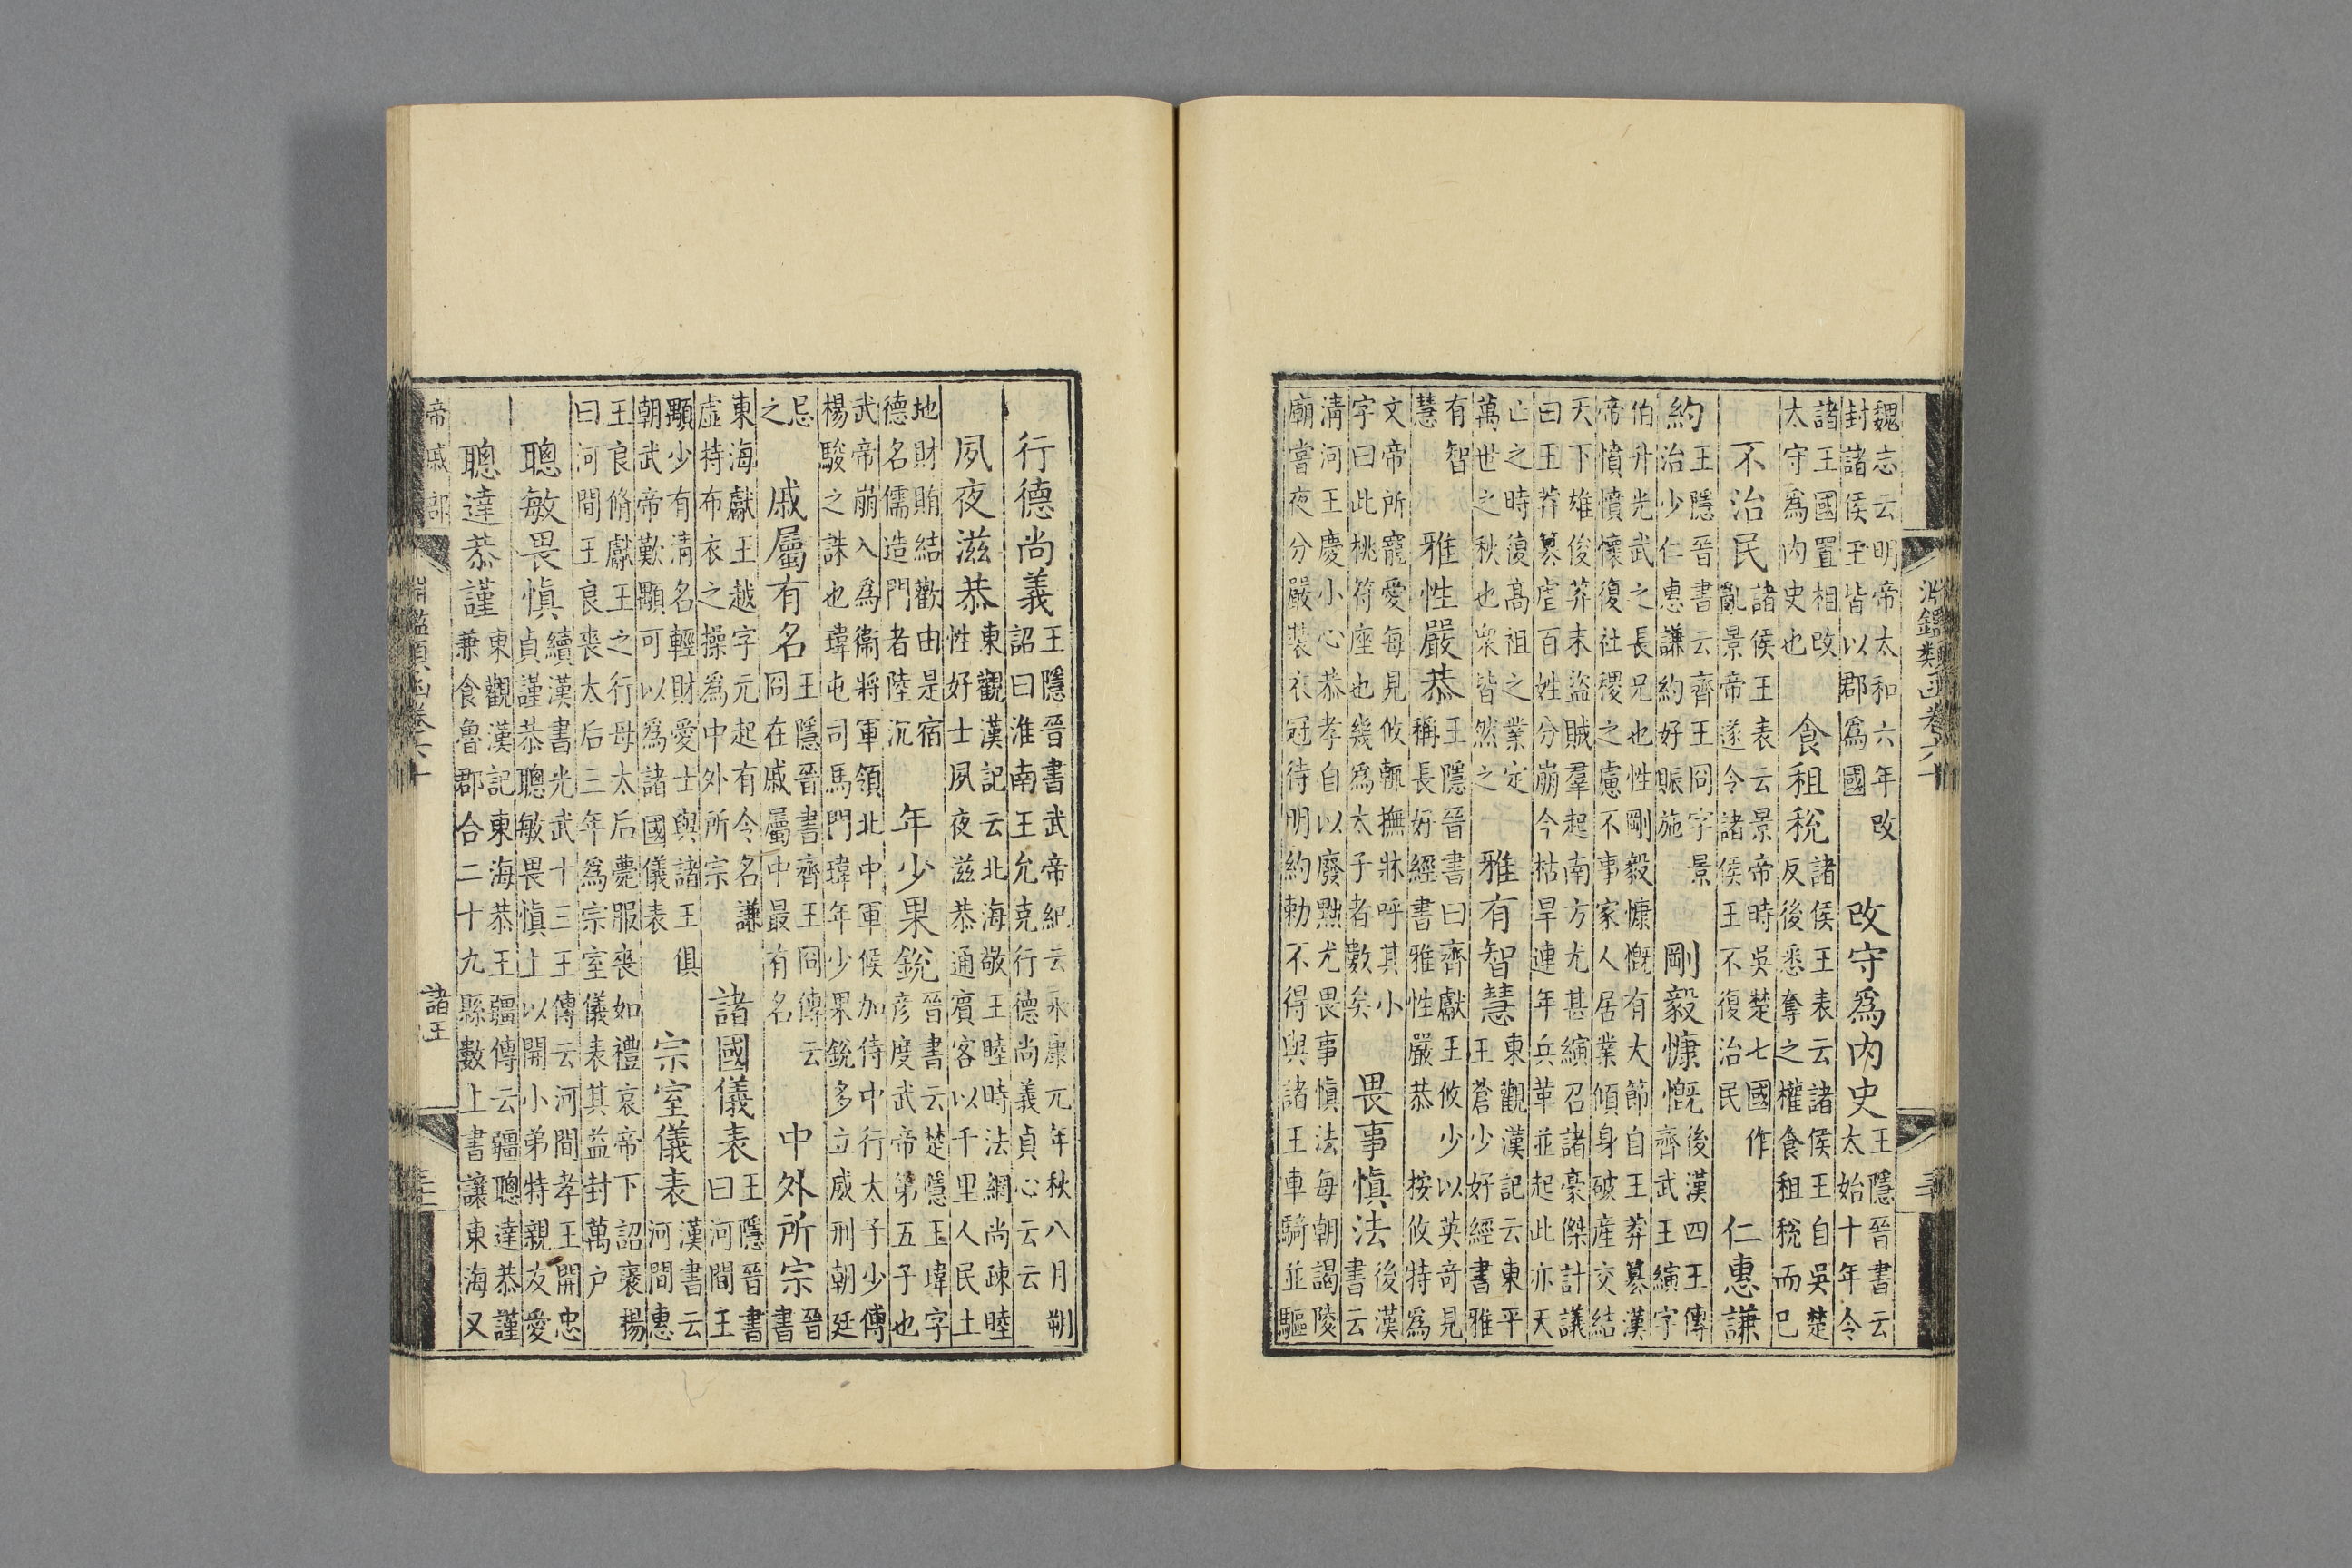 淵鑑類函卷六十
魏志云明帝太和六年改
封諸侯王皆以郡爲國
改守爲内史
王隱晉書云
太始十年令
諸王國置相改
太守爲内史也
食租稅
諸侯王表云諸侯王自吳楚
反後悉奪之權食租稅而已
不治民
諸侯王表云景帝時吳楚七國作
亂景帝遂令諸侯王不復治民
仁惠謙
約
王隱晉書云齊王冏字景
治少仁惠謙約好賑施
剛毅慷慨
後漢四王傳
齊武王縯字
伯升光武之長兄也性剛毅慷慨有大節自王莽簒漢
帝憤憤懷復社稷之慮不事家人居業傾身破産交結
天下雄俊莽末盜賊羣起南方尤甚縯召諸豪傑計議
曰王莽簒虐百姓分崩今枯旱連年兵革並起此亦天
亡之時復髙祖之業定
萬世之秋也衆皆然之
雅有智慧
東觀漢記云東平
王蒼少好經書雅
有智
慧
雅性嚴恭
王隱晉書曰齊獻王攸少以英奇見
稱長好經書雅性嚴恭 按攸特爲
文帝所寵愛每見攸輒撫牀呼其小
字曰此桃符座也幾爲太子者數矣
畏事愼法
後漢
書云
清河王慶小心恭孝自以廢黜尤畏事愼法每朝謁陵
廟嘗夜分嚴裝衣冠待明約勅不得與諸王車騎並驅
行德尚義
王隱晉書武帝紀云永康元年秋八月朔
詔曰淮南王允克行德尚義貞心云云
夙夜滋恭
東觀漢記云北海敬王睦時法網尚疎睦
性好士夙夜滋恭通賓客以千里人民土
地財賄結歡由是宿
德名儒造門者陸沉
年少果銳
晉書云楚隱王瑋字
彦度武帝第五子也
武帝崩入爲衞將軍領北中軍候加侍中行太子少傅
楊駿之誅也瑋屯司馬門瑋年少果銳多立威刑朝廷
忌
之
戚屬有名
王隱晉書齊王冏傳云
冏在戚屬中最有名
中外所宗
晉
書
東海獻王越字元起有令名謙
虛持布衣之操爲中外所宗
諸國儀表
王隱晉書
曰河間王
顒少有清名輕財愛士與諸王俱
朝武帝歎顒可以爲諸國儀表
宗室儀表
漢書云
河間惠
王良脩獻王之行母太后薨服喪如禮哀帝下詔褒揚
曰河間王良喪太后三年爲宗室儀表其益封萬户
聰敏畏愼
續漢書光武十三王傳云河間孝王開忠
貞謹恭聰敏畏愼上以開小弟特親友愛
聰達恭謹
東觀漢記東海恭王疆傳云疆聰達恭謹
兼食魯郡合二十九縣數上書讓東海又
帝戚部
諸王